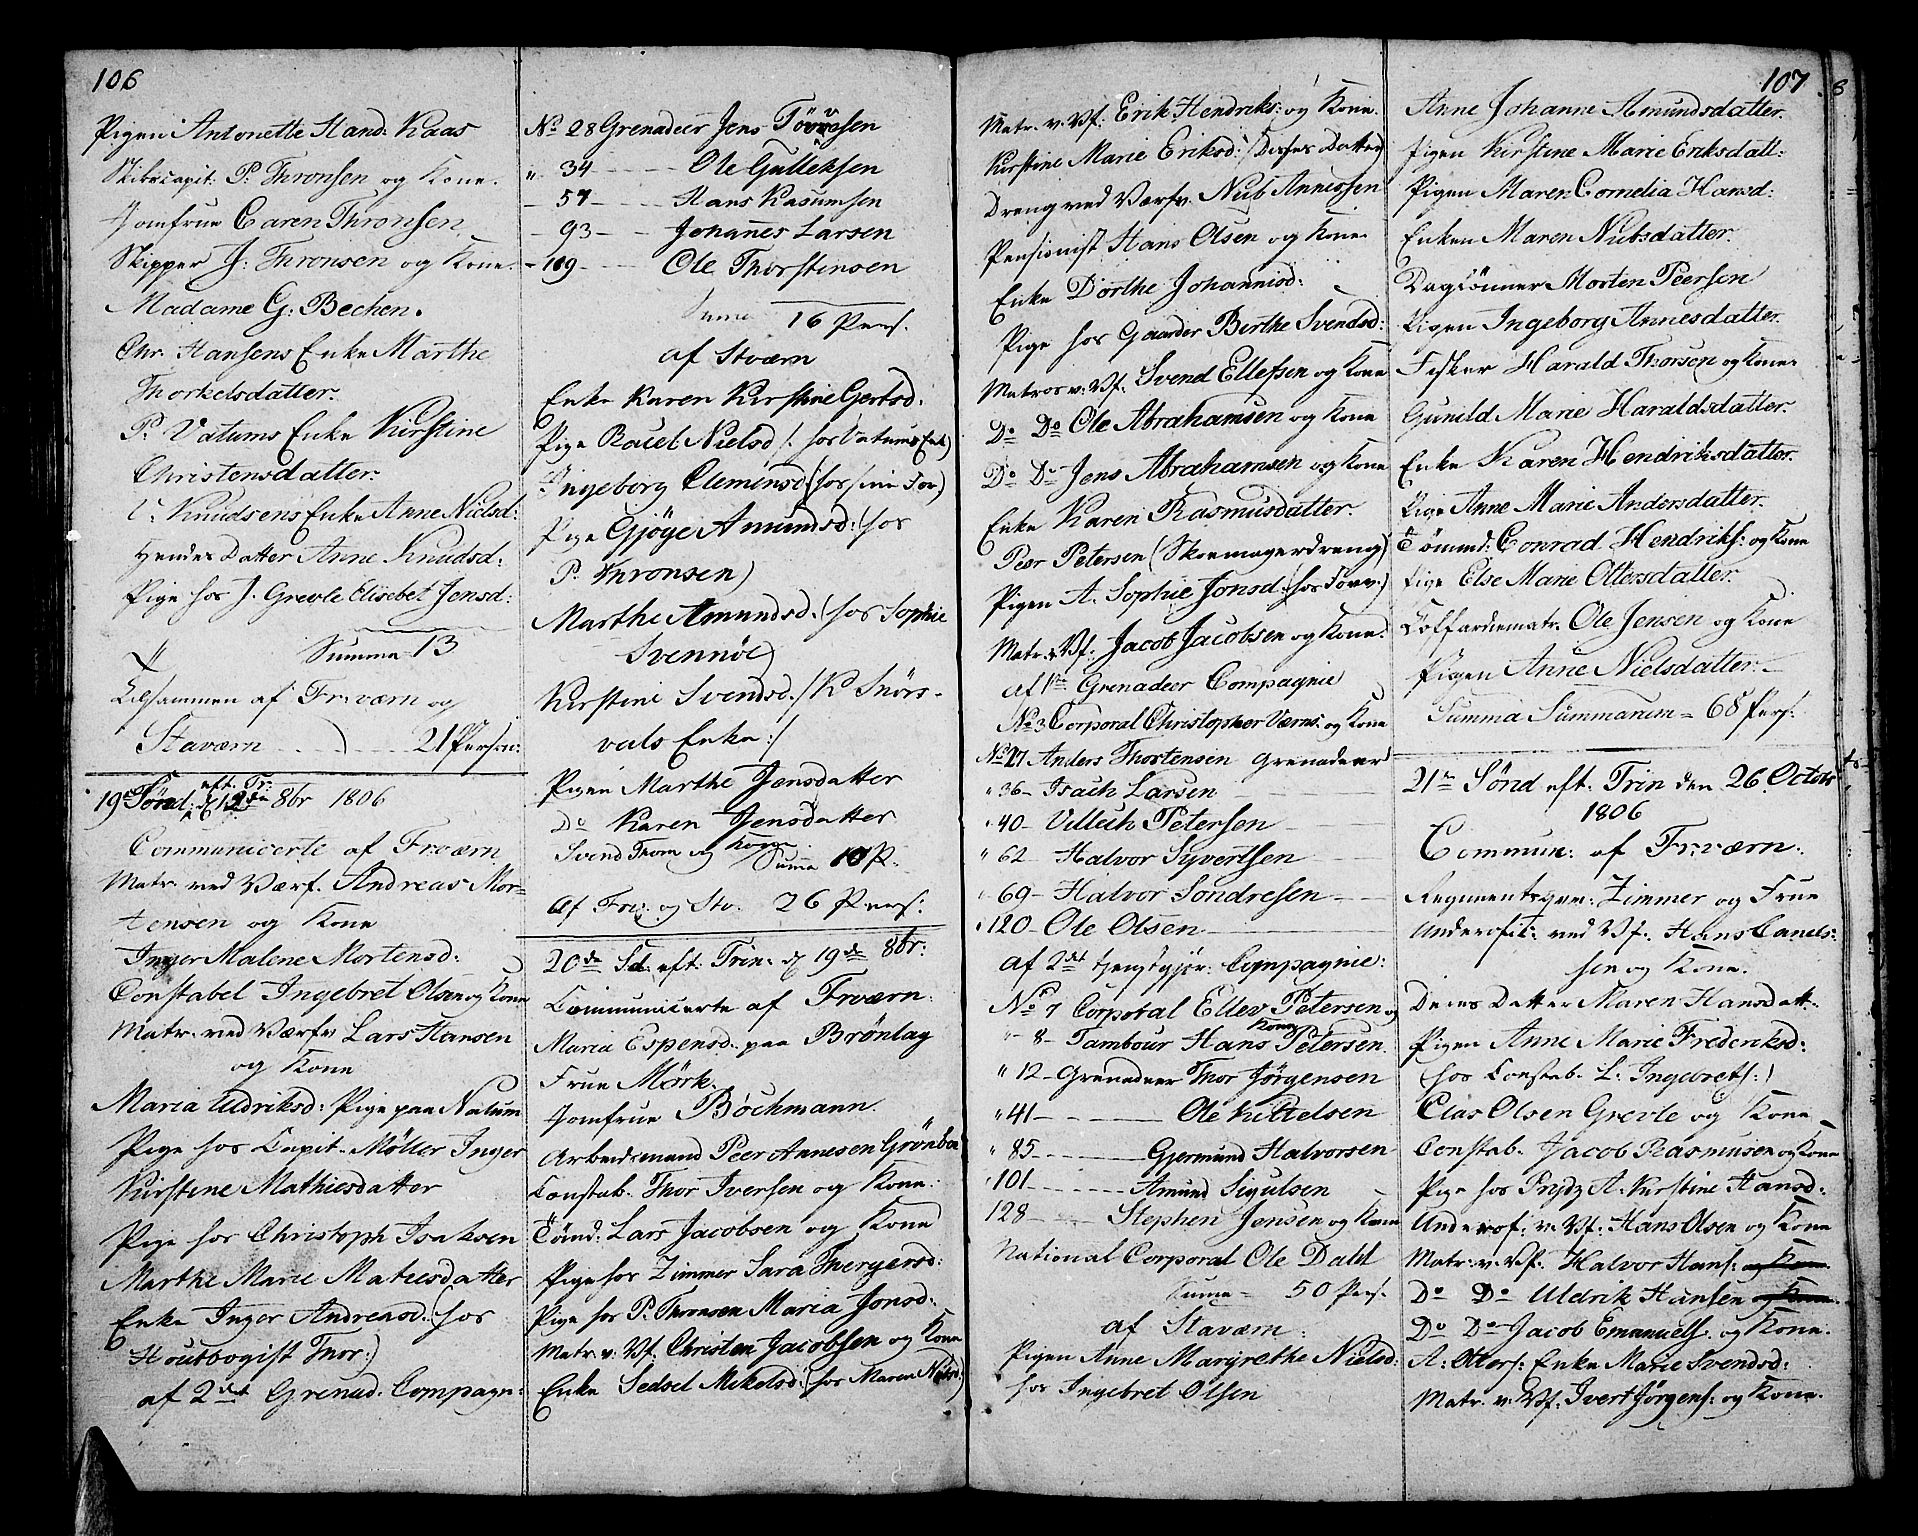 106
Pigen Antonette Hand: Kaas
Skibscapit: P. Thronsen og Kone.
Jomfrue Caren Thronsen
Skipper J: Thronsen og Kone.
Madame G: Bechen.
Chr. Hansens Enke Marthe
Thorkelsdatter.
P. Vatums Enke Kirstine
Christensdatter.
Knudsens Enke Anne Nielsd:
Hendes Datter Anne Knudsd:
Pige hos J. Grevle Elisebet Jensd:
Summa 13
Tilsammen af Fr:værn og
Staværn 21 Person:
19de Sönd: eft. Tr: d 12te 8br 1806
Communicerte af Frværn
Matr. ved Værf. Andreas Mor=
tensen og Kone
Inger Malene Mortensd:
Constabel Ingebret Olsen og Kone
Matr. ved Værfv Lars Hansen
og Kone
Maria Uldriksd: Pige paa Natum
Pige hos Capit. Møller Inger
Kirstine Mathiesdatter
Pige hos Christoph Isaksen
Marthe Marie Matiesdatter
Enke Inger Andreasd: (hos
Houtbogist Thor:)
af 2det Grenad: Compagn:
No 28 Grenadeer Jens Tövresen
" 34 Ole Gulleksen
57 Hans Rasumsen
93 Johannes Larsen
109 Ole Thorstensen
Summa 16 Pers.
af Stværn
Enke Karen Kirstine Gertsd:
Pige Rauel Nielsd /: hos Vatums Enk)
Ingeborg Clemensd (hos sine For)
Pige Gjöge Amundsd: (hos
P. Thronsen)
Marthe Amundsd: (hos Sophie
Svennöe)
Kirstine Svendsd. /K Snörs-
vals Enke:/
Pigen Marthe Jensdatter
Do Karen Jensdatter
Svend Thom og Kone
Summa 10 P.
af Fri: og Stv. 26 Pers:
20de Sd: eft. Trin: d 19de 8br:
Communicerte af Frværn.
Maria Espensd: paa Brönlag
Frue Mörk.
Jomfrue Böchmann.
Arbeidsmand Peer Annesen Grönboe
Constab. Thor Iversen og Kone.
Tömd: Lars Jacobsen og Kone
Pige hos Zimmer Sara Thergersd:
Pige hos P. Thronsen Maria Jonsd:
Matr. v. Vf. Christen Jacobsen og Kone
Enke Sedsel Mikelsd: (hos Maren Nilsd)
Matr. v. Vf. Erik Hendriks: og Kone.
Kirstine Marie Eriksd: (Deres Datter)
Dreng ved Værfv. Niels Annessen
Pensionist Hans Olsen og Kone
Enke Dorthe Johannisd:
Pige hos Gaarder Berthe Svendsd:
Matros v. Vf. Svend Ellefsen og Kone
Do Do Ole Abrahamsen og Kone
Do Do Jens Abrahamsen og Kone
Enke Karen Rasmusdatter.
Peer Petersen (Skomagerdreng)
Pigen A. Sophie Jonsd: (hos Torv.)
Matr. v. Vf. Jacob Jacobsen og Kone.
af 1te Grenadeer Compagnie
No 3 Corporal Christopher Værns: og Kone
No 27 Anders Thortensen Grenadeer
" 36 - Isach Larsen
40 - Villich Petersen
" 62 - Halvor Syvertsen
69 - Halvor Sondresen
120 - Ole Olsen
af 2det tjengstgjör: Compagnie:
No 7 Corporal Ellev Petersen og
Kone
" 8 - Tambour Hans Petersen.
" 12 - Grenadeer Thor Jörgensen
" 41 Ole Kittelsen
" 85 Gjermund Halvorsen
" 101 Amund Sigulsen
128 Stephen Jensen og Kone
National Corporal Ole Dahl
Summa 50 Pers.
af Staværn:
Pigen Anne Margrethe Nielsd:
hos Ingebret Olsen
107
Anne Johanne Amundsdatter.
Pigen Kirstine Marie Eriksdatt:
Pigen Maren Cornelia Hansd:
Enken Maren Nielsdatter.
Daglönner Morten Peersen
Pigen Ingeborg Annesdatter.
Fisker Harald Thorsen og Kone
Gunild Marie Haraldsdatter.
Enke Karen Hendriksdatter.
Pige Anne Marie Andersdatter.
Tömmd: Conrad Hendriks: og Kone
Pige Else Marie Ottersdatter.
Coffardiematr. Ole Jensen og Kone
Pigen Anne Nielsdatter.
Summa Summarum = 68 Pers:
21de Sönd eft. Trin den 26 Octobr
1806
Commun: af Fr:værn:
Regimentsqvv: Zimmer og Frue
Underofit: ved Vf. Hans Canels:
sen og Kone.
Deres Datter Maren Hansdatt.
Pigen Anne Marie Frederiksd:
(hos Constab. L. Ingebrets:)
Clas Olsen Grevle og Kone
Constab. Jacob Rasmusen og Kone
Pige hos Prydz A. Kirstine Hansd:
Underof: v. Vf. Hans Olsen og Kone
Matr. v. Vf. Halvor Hans: og Kone
Do Do Uldrik Hansen og Kone
Do Do Jacob Emanuels. og Kone.
A: Otters: Enke Marie Svendsd:
Matr. v. Vf. Ivert Jörgens: og Kone.